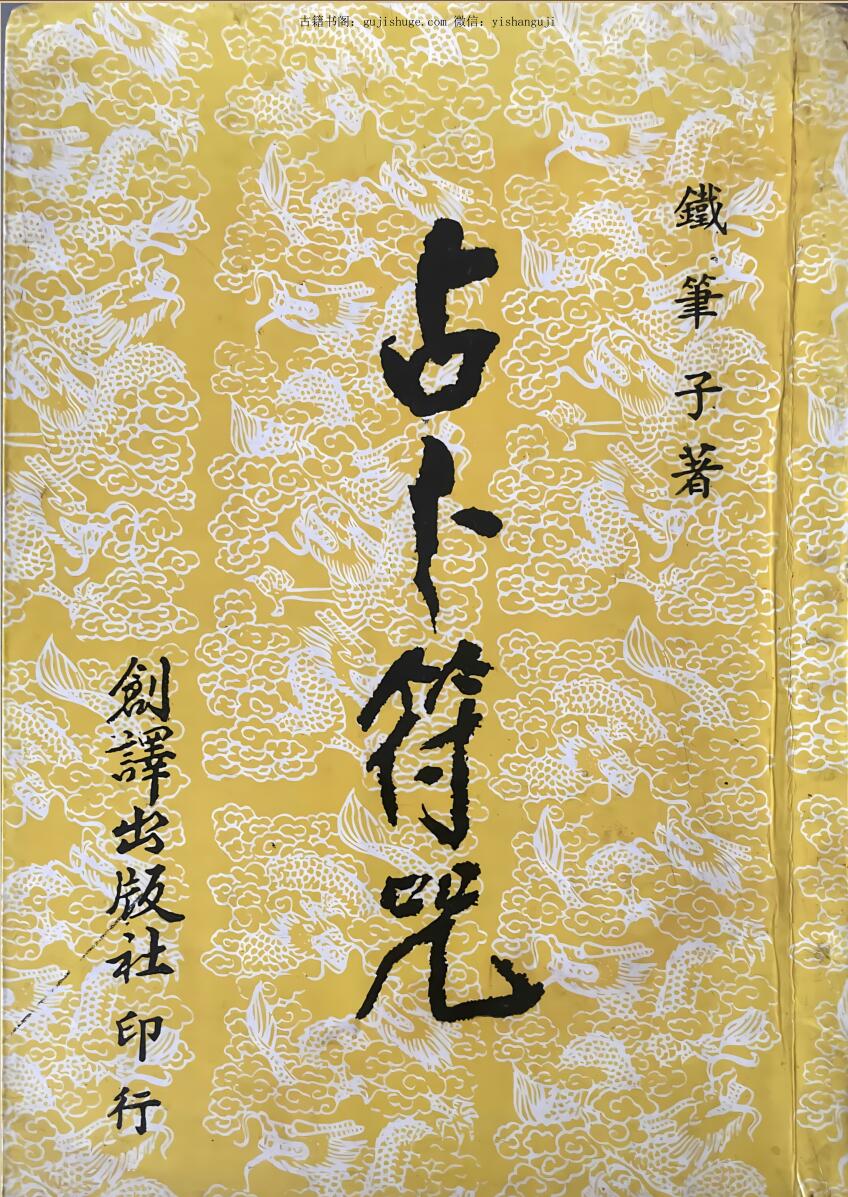 古籍书阁：gujishuge.com 微信：yishanguji
鐵筆子著
占卜符咒
創譯出版社印行